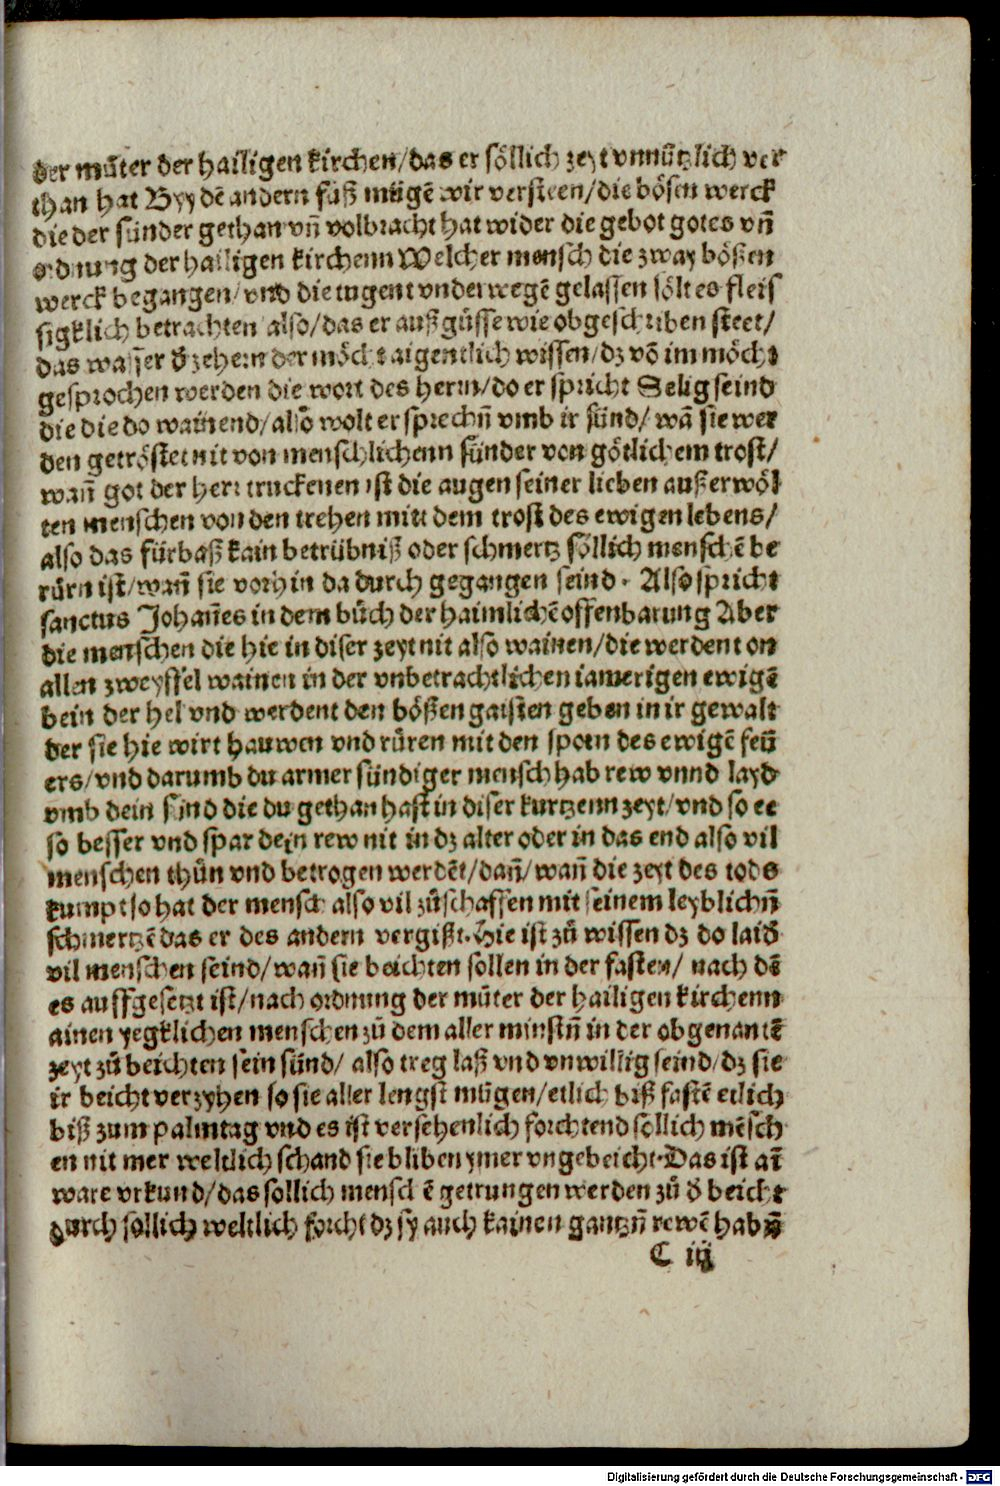 der můter der hailigen kirchen/das er söllich zeyt vnnützlich ver
than hat Byy dē andern fůß mügē wir versteen/die bösen werck
die der sünder gethan vn̄ volbracht hat wider die gebot gotes vn̄
ordnung der hailigen kirchenn Welcher mensch die zway bößen
werck begangen/vnd die tugent vnderwegē gelassen sölt es fleis
sigklich betrachten also/das er außgüsse wie obgeschriben steet/
das wasser d̄ zehern der möcht aigentlich wissen/dz vō im möcht
gesprochen werden die wort des herrn/do er spricht Selig seind
die die do wainend/also wolt er sprechn̄ vmb ir sünd/wā sie wer
den getröstet nit von menschlichenn sünder von götlichem trost/
wan̄ got der herr truckenen ist die augen seiner lieben außerwöl
ten menschen von den trehen mitt dem trost des ewigen lebens/
also das fürbaß kain betrübniß oder schmertz söllich menschē be
rürn ist/wan̄ sie vorhin da durch gegangen seind. Also spricht
sanctus Johan̄es in dem bůch der haimlichē offenbarung Aber
die menschen die hie in diser zeyt nit also wainen/die werdent on
allen zweyffel wainen in der vnbetrachtlichen iamerigen ewigē
bein der hel vnd werdent den bößen gaisten geben in ir gewalt
der sie hie wirt hauwen vnd rüren mit den sporn des ewigē feü
ers/vnd darumb du armer sündiger mensch hab rew vnnd layd
vmb dein sünd die du gethan hast in diser kurtzenn zeyt/vnd so ee
so besser vnd spar dein rew nit in dz alter oder in das end also vil
menschen thůn vnd betrogen werdēt/dan̄/wan̄ die zeyt des tods
kumpt so hat der mensch also vil zůschaffen mit seinem leyblichn̄
schmertzē das er des andern vergißt. Hie ist zů wissen dz do laid̄
vil menschen seind/wan̄ sie beichten sollen in der fasten/ nach dē
es auffgesetzt ist/nach ordnung der můter der hailigen kirchenn
ainen yegklichen menschen zů dem aller minstn̄ in der obgenantē
zeyt zů beichten sein sünd/ also treg laß vnd vnwillig seind/dz sie
ir beicht verzyhen so sie aller lengst mügen/etlich biß fastē etlich
biß zum palmtag vnd es ist versehenlich forchtend söllich mēsch
en nit mer weltlich schand sie bliben ymer vngebeicht. Das ist ai
ware vrkund/das sollich menschē getrungen werden zů d̄ beicht
durch sollich weltlich forcht dz sy auch kainen gantzn̄ rewē habn̄
C iij
Digitalisierung gefördert durch die Deutsche Forschungsgemeinschaft - DFG